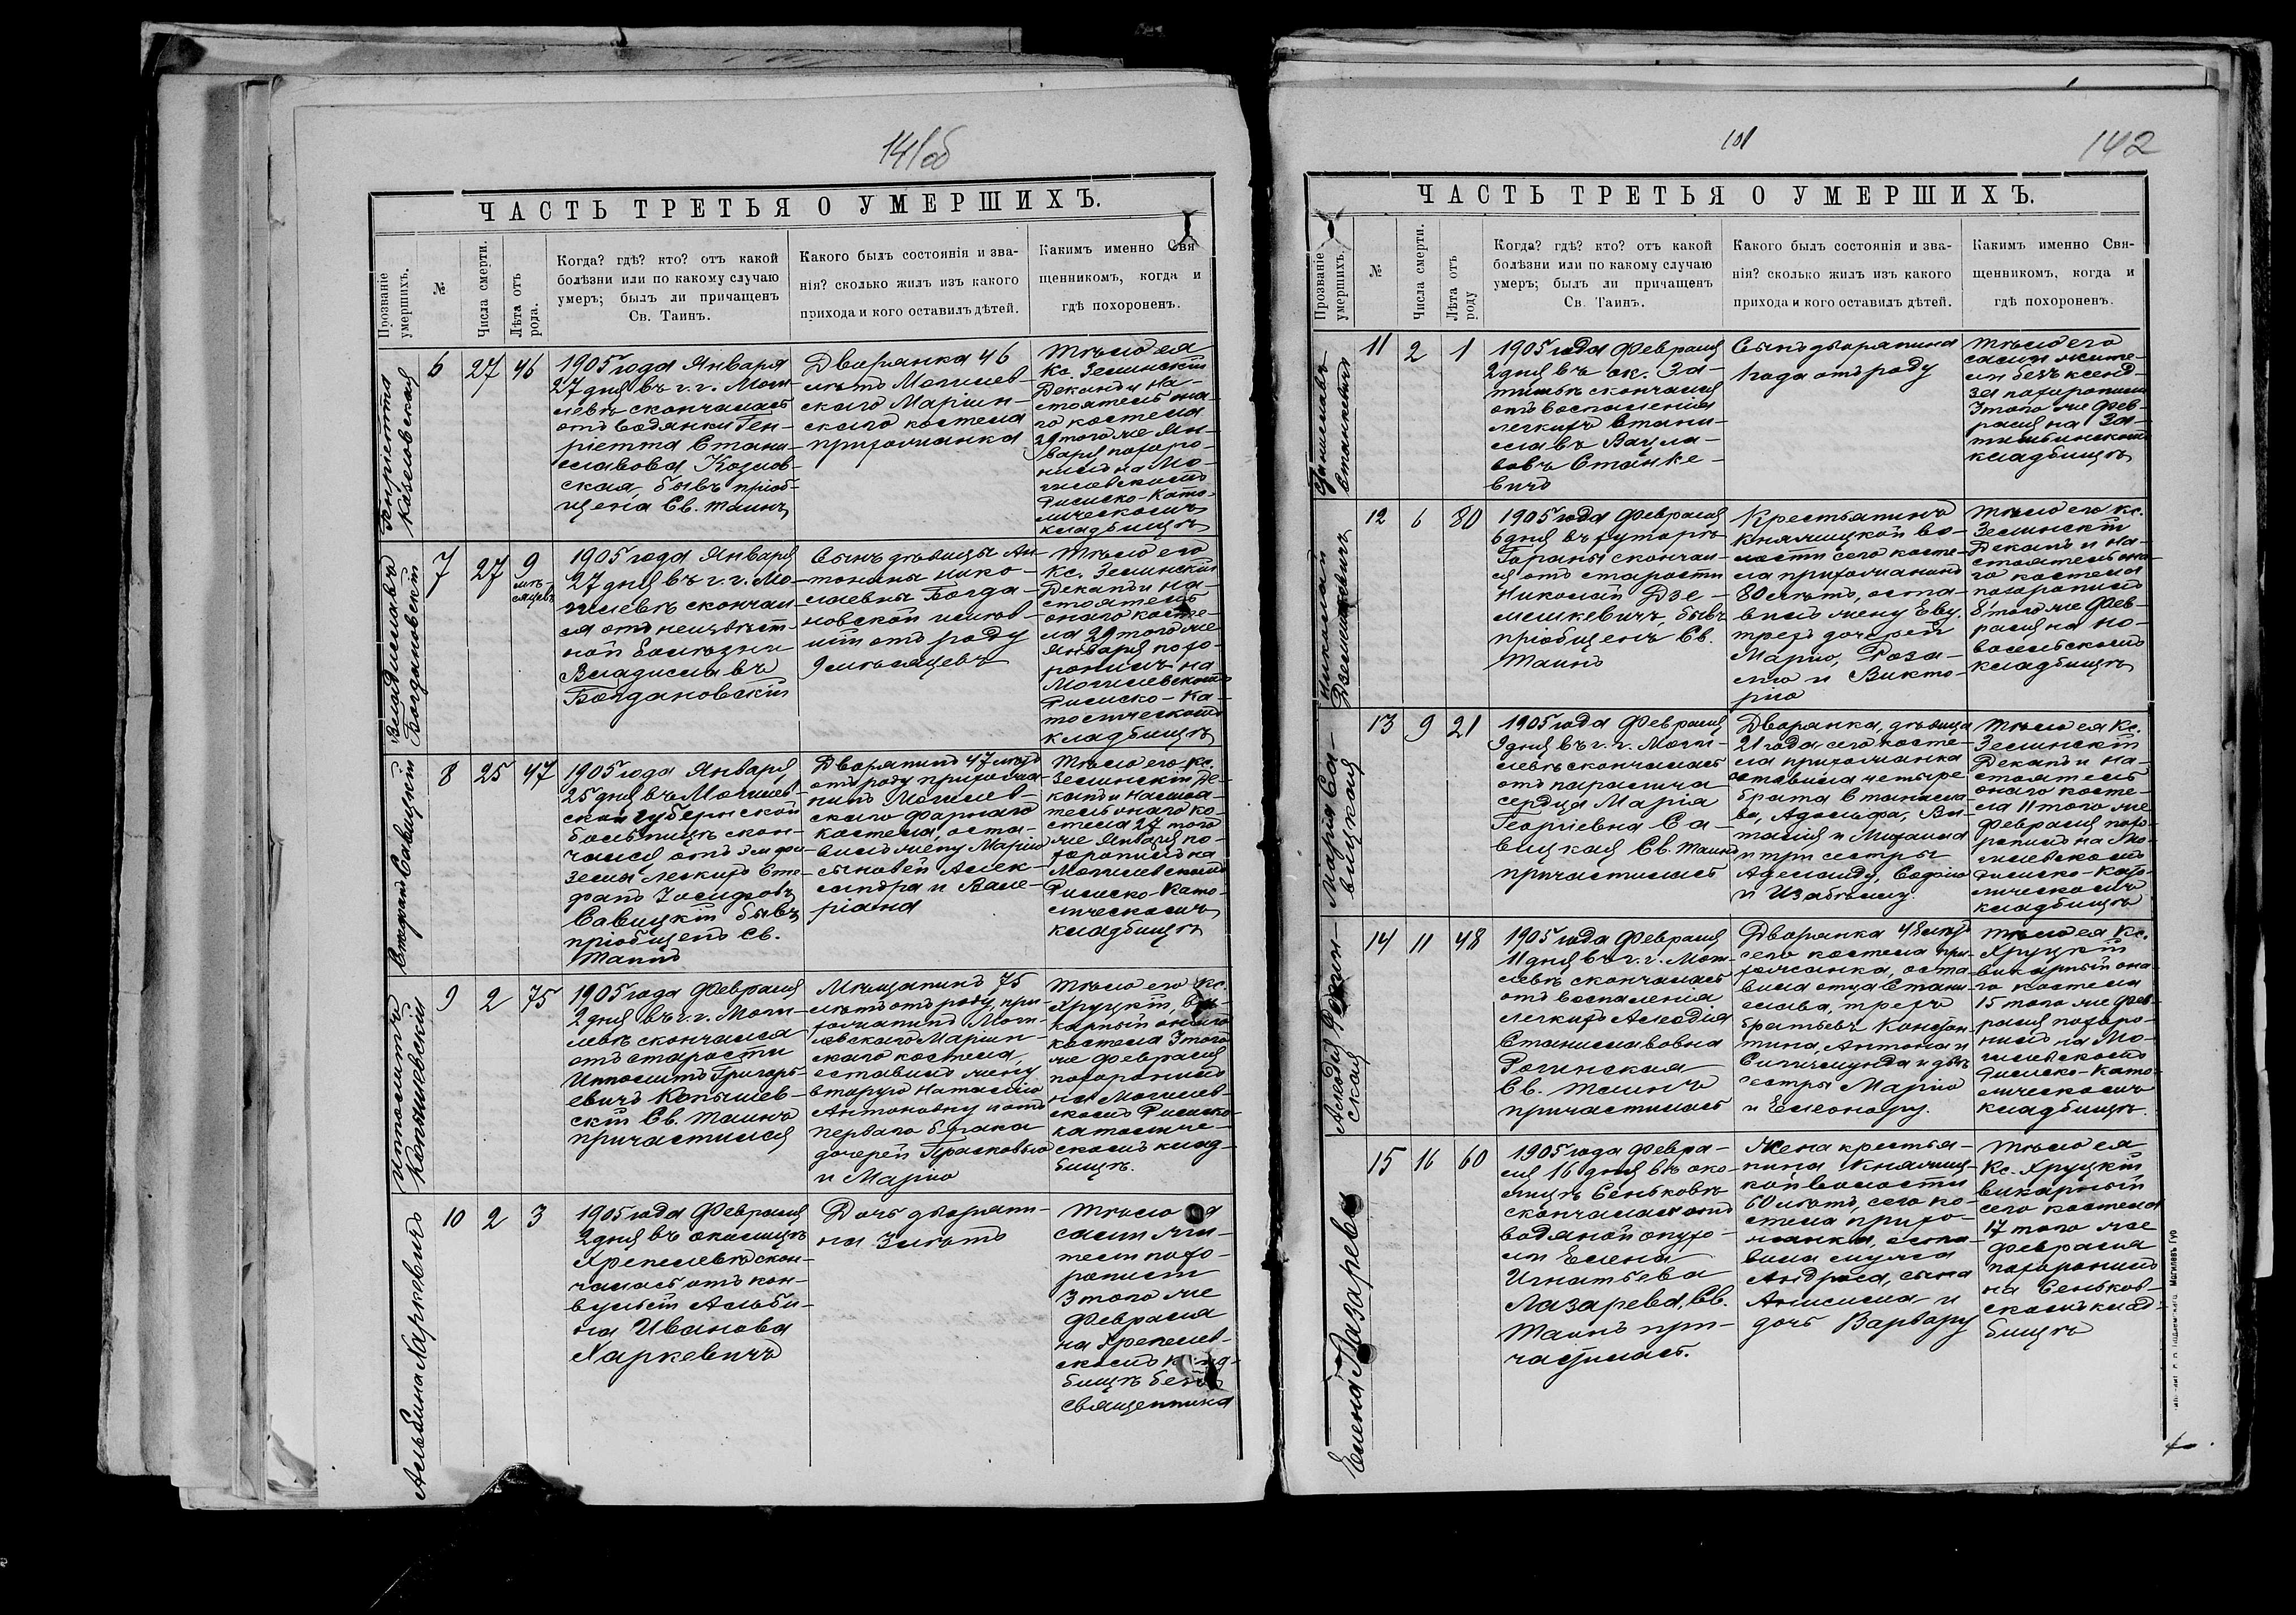 141об
ЧАСТЬ ТРЕТЬЯ О УМЕРШИХЪ.
Прозваніе умершихъ.
№
Числа смерти.
Лѣта отъ рода.
Когда? гдѣ? кто? отъ какой
болѣзни или по какому случаю
умеръ; былъ ли причащенъ
Св. Таинъ.
Какого былъ состоянія и зва-
нія? сколько жилъ изъ какого
прихода и кого оставилъ дѣтей.
Каким именно Свя
щенникомъ, когда и
гдѣ похороненъ.
Генріетта
Козловская
6
27
46
1905 года Января
27 дня въ г. г. Моги-
левѣ скончалась
отъ водянки Ген-
ріетта Стани-
славова Козлов-
ская, бывъ пріоб-
щена Св. таинъ
Дворянка 46
лѣтъ Могилев-
скаго Маріин-
скаго костела
прихожанка
Тѣло ея
Кс. Зелинскій
Деканъ и На-
стоятель она-
го костела
29 того же Ян-
варя похоро-
нилъ на Мо-
гилевскомъ
Римско-Като-
лическомъ
кладбищѣ
Владиславъ
Богдановскій
7
27
9
мѣ-
сяцевъ
1905 года Января
27 дня въ г. г. Мо-
гилевѣ скончал-
ся отъ неизвѣст-
ной болѣзни
Владиславъ
Богдановскій
Сынъ дѣвицы Ан-
тонины Нико-
лаевны Богда-
новской имѣв-
шій отъ роду
9 мѣсяцевъ
Тѣло его
Кс. Зелинскій
Деканъ и На-
стоятель
онаго косте-
ла 29 того же
Января похо-
ронилъ на
Могилевскомъ
Римско-Ка-
толическомъ
кладбищѣ
Стефанъ Савицкій
8
25
47
1905 года Января
25 дня въ Могилев-
ской губернской
больницѣ скон-
чался отъ эмфи-
земы легкихъ Сте-
фанъ Іосифовъ
Савицкій бывъ
пріобщенъ Св.
Таинъ
Дворянинъ 47 лѣтъ
отъ роду прихожа-
нинъ Могилев-
скаго Фарнаго
костела, оста-
вилъ жену Марію
сыновей Алек-
сандра и Вале-
ріана
Тѣло его Кс.
Зелинскій Де-
канъ и Настоя-
тель онаго ко-
стела 27 того
же Января по-
хоронилъ на
Могилевскомъ
Римско-Като-
лическомъ
кладбищѣ
Ипполитъ
Копылевскій
9
2
75
1905 года Февраля
2 дня въ г. г. Моги-
левѣ скончался
отъ старости
Ипполитъ Григорь-
евичъ Копылев-
скій Св. Таинъ
причастился
Мѣщанинъ 75
лѣтъ отъ роду, при-
хожанинъ Моги-
левскаго Маріин-
скаго костела,
оставилъ жену
вторую Наталію
Антоновну и отъ
перваго брака
дочерей Прасковью
и Марію
Тѣло его Кс.
Хруцкій, ви-
карный онаго
костела 3 того
же Февраля
похоронилъ
на Могилев-
скомъ Римско-
католиче-
скомъ клад-
бищѣ.
Альбина Харкевичъ
10
2
3
1905 года Февраля
2 дня въ околицѣ
Хрепелевѣ скон-
чалась отъ кон-
вульсій Альби-
на Иванова
Харкевичъ
Дочь дворяни-
на 3 лѣтъ
Тѣло ея
сами жи-
тели похо-
ронили
3 того же
Февраля
на Хрепелев-
скомъ клад-
бищѣ безъ
Священника
101
142
ЧАСТЬ ТРЕТЬЯ О УМЕРШИХЪ.
Прозваніе умершихъ.
№
Числа смерти.
Лѣта отъ роду
Когда? гдѣ? кто? отъ какой
болѣзни или по какому случаю
умеръ; былъ ли причащенъ
Св. Таинъ.
Какого былъ состоянія и зва-
нія? сколько жилъ изъ какого
прихода и кого оставилъ дѣтей.
Какимъ именно Свя-
щенникомъ, когда и
гдѣ похороненъ.
Станиславъ
Станкевичъ
11
2
1
1905 года Февраля
2 дня въ ок. За-
тишьѣ скончался
отъ воспаленія
легкихъ Стани-
славъ Вацла-
вовъ Станке-
вичъ
Сынъ дворянина
1 года отъ роду
Тѣло его
сами жите-
ли безъ ксенд-
за похоронили
3 того же Фев-
раля на За-
тишьинскомъ
кладбищѣ
Николай
Дземешкевичъ
12
6
80
1905 года Февраля
6 дня въ хуторѣ
Гораны скончал-
ся отъ старости
Николай Дзе-
мешкевичъ, бывъ
пріобщенъ Св.
Таинъ
Крестьянинъ
Княжицкой во-
лости сего косте-
ла прихожанинъ
80 лѣтъ, оста-
вилъ жену Еву,
трехъ дочерей
Марію, Роза-
лію и Викто-
рію
Тѣло его Кс.
Зелинскій
Деканъ и На-
стоятель она-
го костела
похоронилъ
8 того же Фев-
раля на Но-
восельскомъ
кладбищѣ
Марія Са-
вицкая
13
9
21
1905 года Февраля
9 дня въ г. г. Моги-
левѣ скончалась
отъ паралича
сердца Марія
Георгіевна Са-
вицкая Св. Таинъ
причастилась
Дворянка, дѣвица
21 года сего косте-
ла прихожанка
оставила четыре
брата Станисла-
ва, Адольфа, Ви-
талія и Михаила
и три сестры
Аделаиду, Софію
и Изабеллу.
Тѣло ея Кс.
Зелинскій
Деканъ и На-
стоятель
онаго косте-
ла 11 того же
Февраля похо-
ронилъ на Мо-
гилевскомъ
Римско-Като-
лическомъ
кладбищѣ
ская
14
11
48
1905 года Февраля
11 дня въ г. г. Моги-
левѣ скончалась
отъ воспаленія
легкихъ
Станиславовна
Рогинская
Св. Таинъ
причастилась
Дворянка 48 лѣтъ
сего костела при-
хожанка, оста-
вила отца Стани-
слава, трехъ
братьевъ Констан-
тина, Антона и
Сигизмунда и двѣ
сестры Марію
и Елеонору.
Тѣло ея Кс.
Хруцкій
викарный она-
го костела
15 того же Фев-
раля похоро-
нилъ на Мо-
гилевскомъ
Римско-Като-
лическомъ
кладбищѣ.
Елена Лазарева
15
16
60
1905 года Февра-
ля 16 дня въ око-
лицѣ Сеньковѣ
скончалась отъ
водяной опухо-
ли Елена
Игнатьева
Лазарева, Св.
Таинъ при-
частилась.
Жена крестья-
нина Княжиц-
кой волости
60 лѣтъ, сего ко-
стела прихо-
жанка, оста-
вила мужа
Андрея, сына
Анисима и
дочь Варвару
Тѣло ея
Кс. Хруцкій
викарный
сего костела
17 того же
Февраля
похоронилъ
на Сеньков-
скомъ клад-
бищѣ